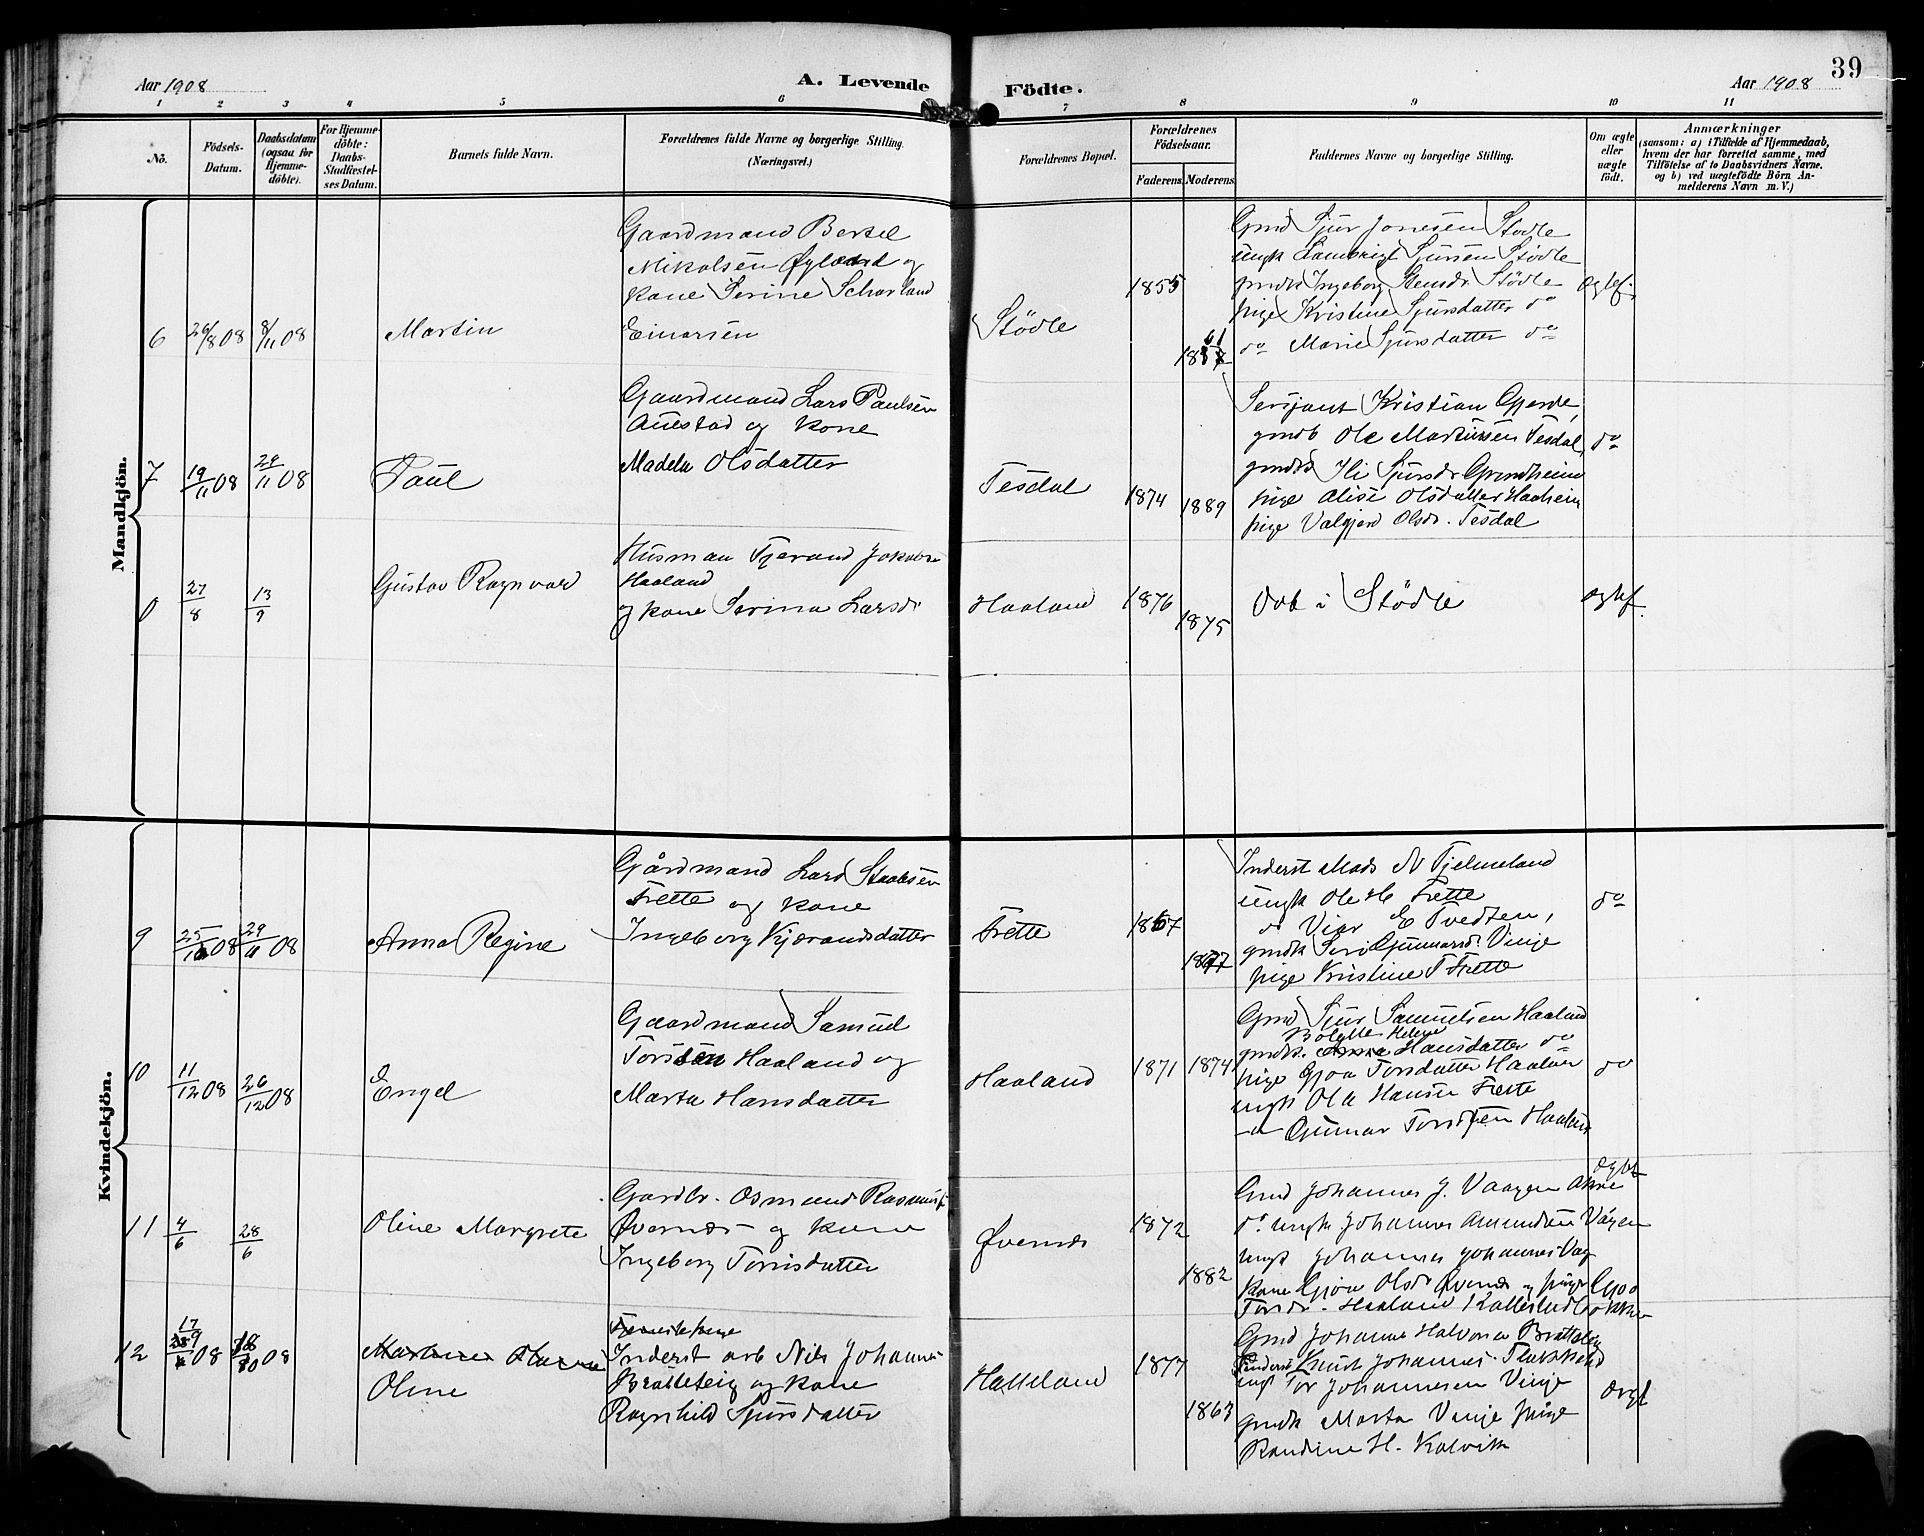 39
Aar 1908
A. Levende Födte.
Aar 1908
1 2 3 4 5 6 7 8 9 10 11
No.
Födsels-
Datum.
Daabsdatum
(ogsaa for
Hjemme-
döbte).
For Hjemme-
döbte:
Daabs-
Stadfæstel-
ses Datum.
Barnets fulde Navn.
Forældrenes fulde Navne og borgerlige Stilling.
(Næringsvei.)
Forældrenes Bopæl.
Forældrenes
Födselsaar.
Faderens. Moderens.
Faddernes Navne og borgerlige Stilling.
Om ægte
eller
uægte
födt.
Anmærkninger
(saasom: a) i Tilfælde af Hjemmedaab,
hvem der har forrettet samme, med
Tilföielse af to Daabsvidners Navne.
og b) ved uægtefödte Börn An-
melderens Navn m. V.)
Mandkjön.
6 26/8 08 8/11 08 Martin
Gaardmand Bertel
Mikalsen Øgland og
kone Serine
Einarsen
Stödle
1855
Gmd Sjur Jonesen Stödle
ungk Lambrigt Sjursen Stödle
gmdk Ingeborg Stensdr Stödle
pige Kristine Sjursdatter do
do Marie Sjursdatter do
ægtef.
7 19/11 08 29/11 08 Paul
Gaardmand Lars Paulsen
Auestad og kone
Madela Olsdatter
Tesdal
1874 1889
Sersjant Kristian Gjerde,
gmdb Ole Martinssen Tesdal,
gmdk Ili Sjursdr Grindheim
pige Alise Olsdatter Haaheim
pige Valgjerd Olsdr. Tesdal
do
27/8 13/9 Gustav Ragnvald
Husman Tjerand Jakobsen
Haaland
og kone Serina Larsdr
Haaland
1876 1875
Döb i Stödle
ægtef.
Kvindekjön.
9 08 29/11 08 Anna Regine
Gårdmand Lars Staalesen
Frette og kone
Ingeborg Kjærandsdatter
Frette
1867
Inderst Mads N Tjelmeland
ungk Ole H Frette
E Tvedten,
gmdk Seri Gunnarsd. Vinje
pige Kristine T Frette
do
10 11/12 08 26/12 08 Engel
Gaardmand Samuel
Torssen Haaland og
Marta Hansdatter
Haaland
1871 1874
Gmd Sjur Samuelsen Haaland
Bolette Helene
gmdk. Anna Hansdatter do
pige Gjoa Torsdatter Haaland
ungk Ola Hansen Frette
do Gunnar Torssen Haaland
do
11 4/6 28/6 Oline Margrete
Gardbr. Osmund Rasmus
Øvernæs og kone
Ingeborg Torrisdatter
Øvernæs
1872 1882
ægte
Gmd Johannes J. Vaagen
do ungk Johannes Amundsen Vågen
ungk Johannes Johannes Vag
kone Gjöa Olsdr Øvernæs og pige Gjoo
Torsdr. Haaland
12 08 08 Oline
Inderst arb Nils Johannes
Bratteteig og kone
Ragnhild Sjursdatter
Hatteland
1877 1863
Gmd Johannes Halvorsen Bratteteig
Inderst Knut Johannes
ungk Tor Johannesen Vinje
gmdk Marta Vinje pige
Randine H. Kalvik